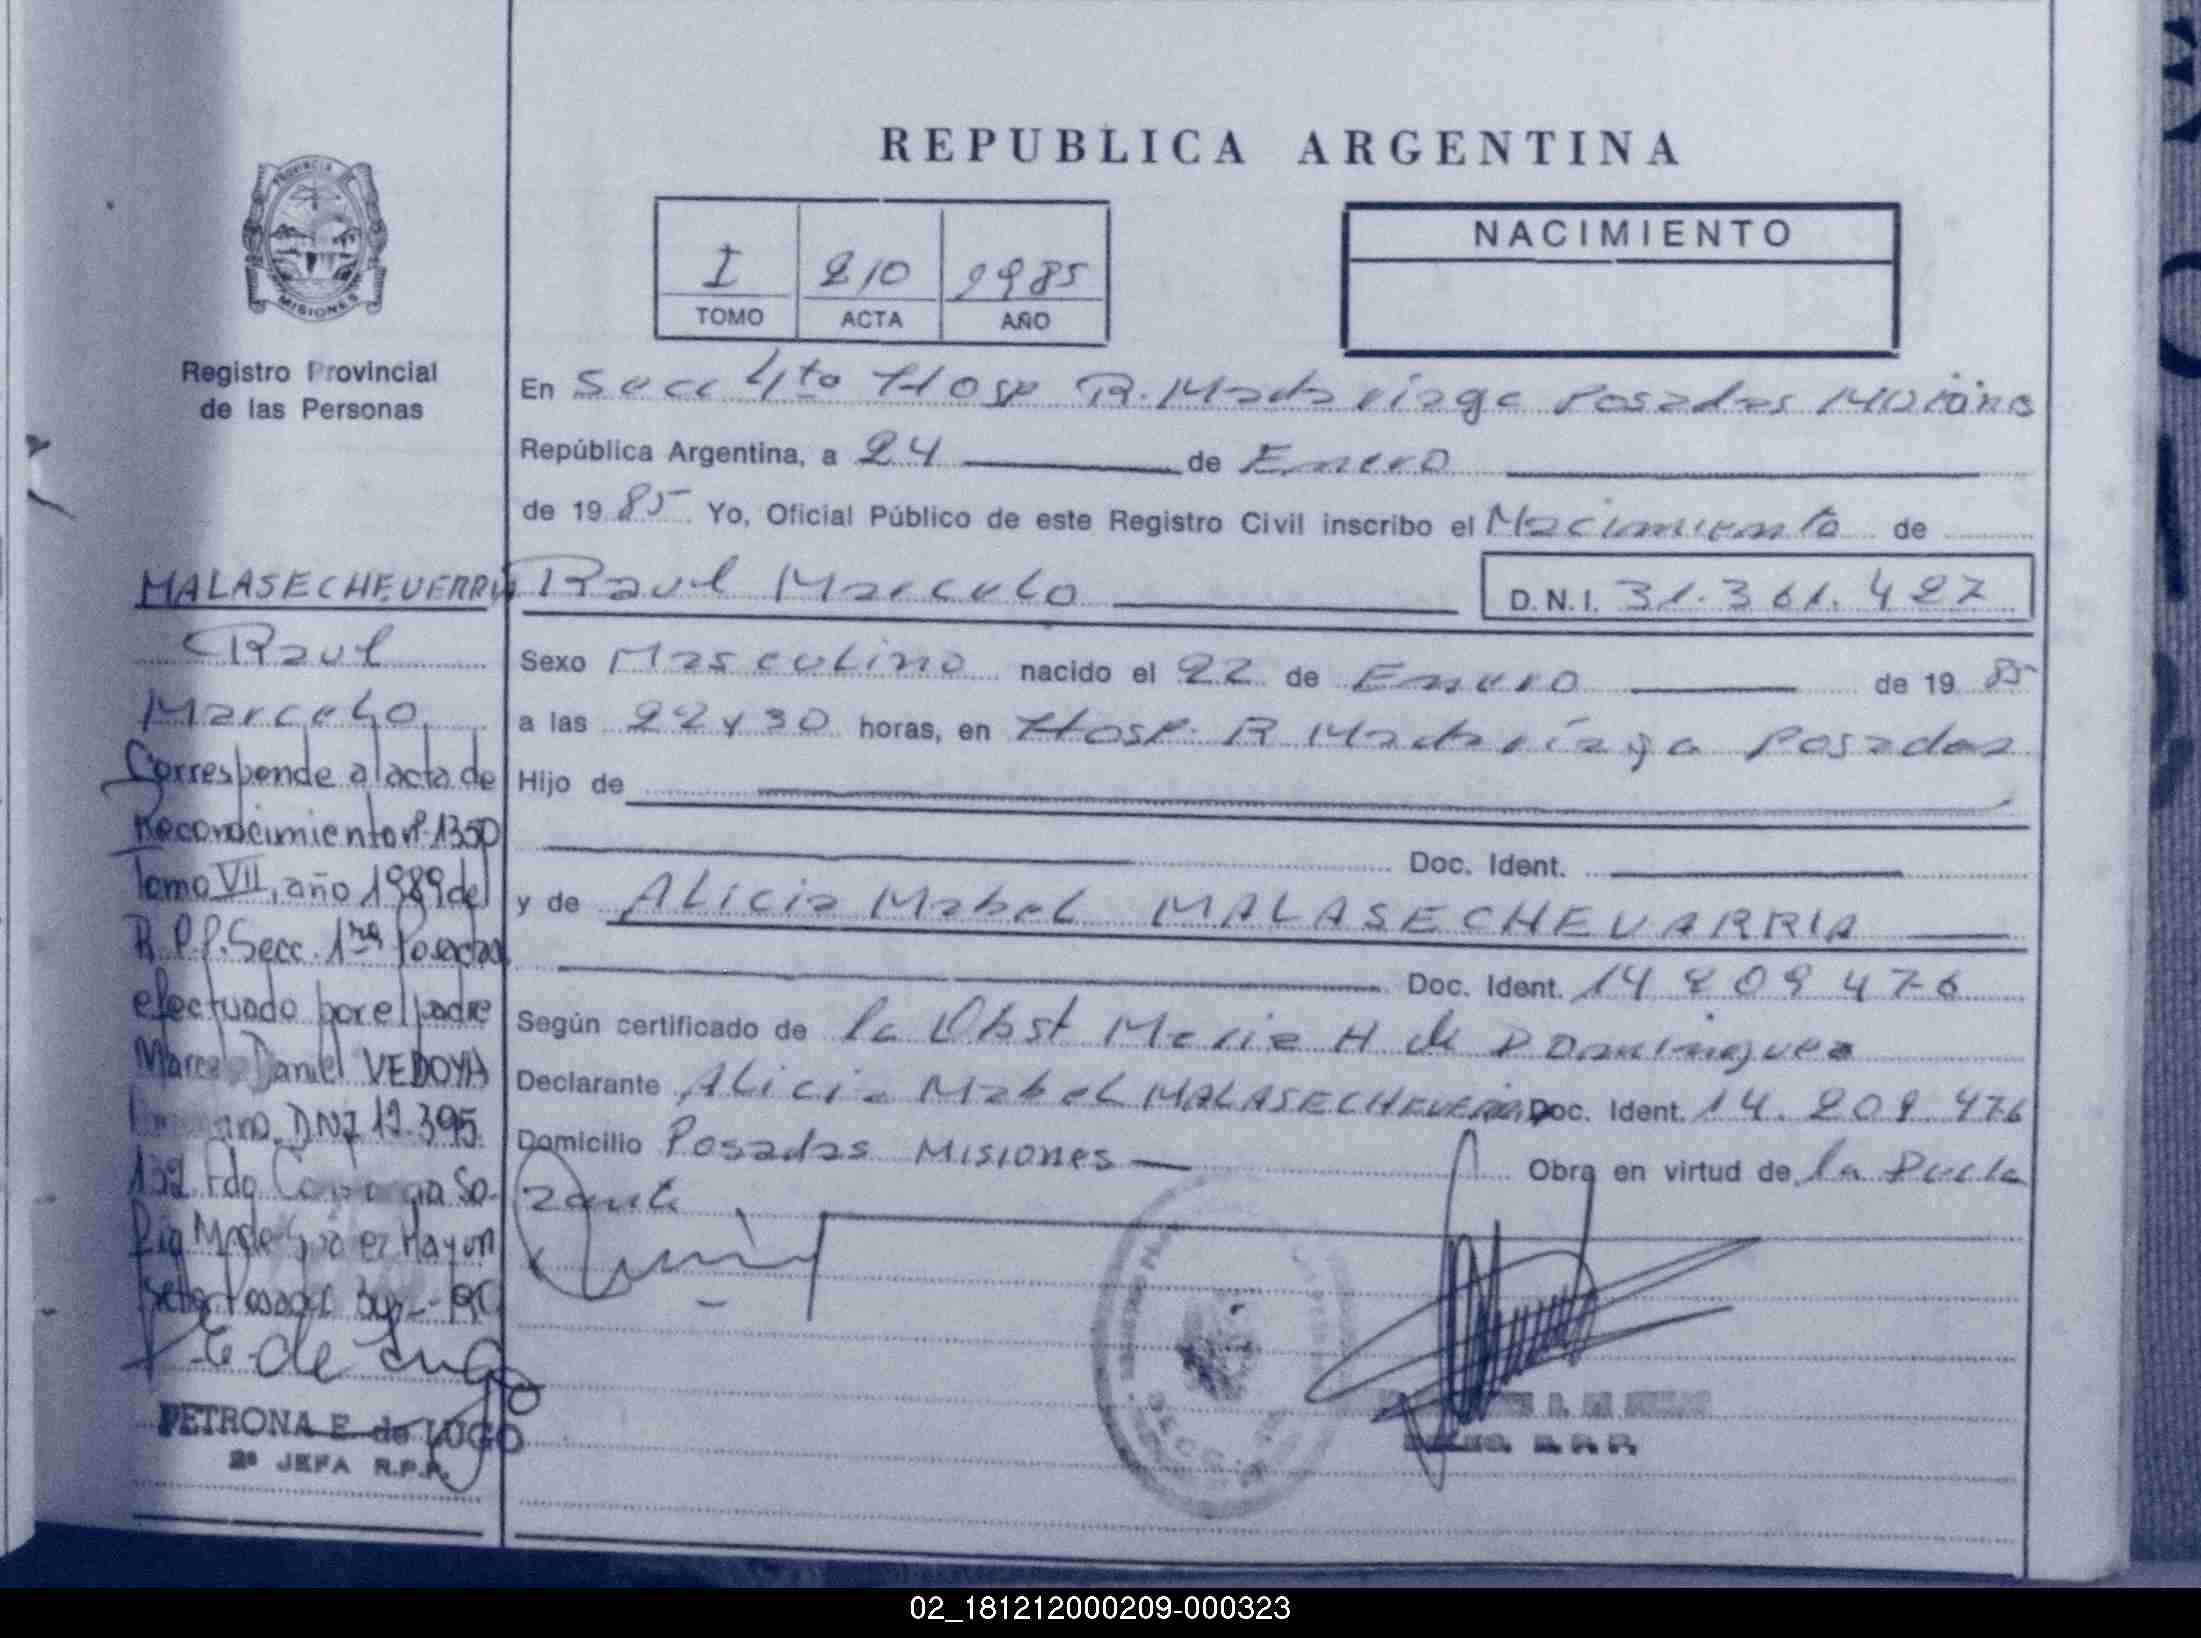 REPUBLICA ARGENTINA
PROVINCIA
MISIONES
Registro Provincial
de las Personas
I 210 1985
TOMO ACTA AÑO
NACIMIENTO
En Secc 4ta Hosp R. Madariaga Posadas Misiones
República Argentina, a 24 de Enero
de 1985 Yo, Oficial Público de este Registro Civil inscribo el Nacimiento de
Raul Marcelo D.N.I. 31.361.427
Sexo Masculino nacido el 22 de Enero de 1985
a las 22 y 30 horas, en Hosp. R Madariaga Posadas
Hijo de
Doc. Ident.
y de Alicia Mabel MALASECHEVARRIA
Doc. Ident. 14 209 476
Según certificado de la Obst Maria H de Dominguez
Declarante Alicia Mabel MALASECHEVERRIA Doc. Ident. 14.209 476
Domicilio Posadas Misiones Obra en virtud de la Decla
rante
MALASECHEVERRIA
Raul
Marcelo
Corresponde al acta de
Reconocimiento nº 1350
Tomo VII, año 1989 del
R.P.P. Secc. 1ra Posadas
efectuado por el padre
Marcelo Daniel VEDOYA
DNI 12.395.
132. Fdo
Posadas
PETRONA E. de LUGO
2ª JEFA R.P.P.
R.P.P.
02_181212000209-000323